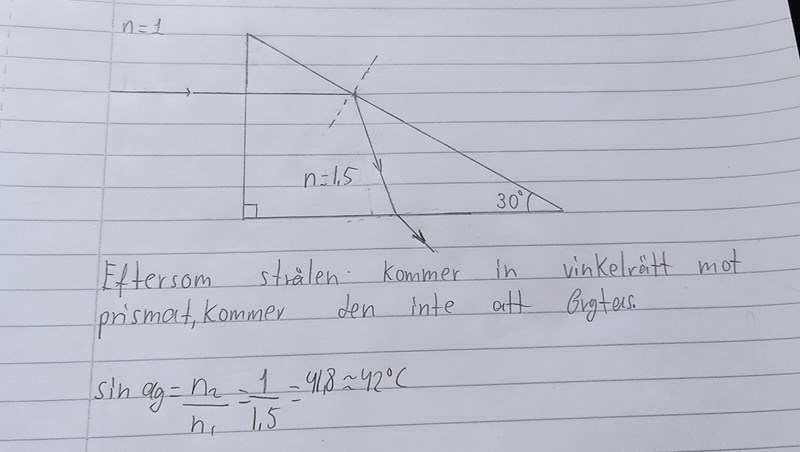 n=1
n=1,5
30°
Eftersom strålen kommer in vinkelrätt mot
prismat, kommer den inte att brytas.
sin αg = n₂/n₁ = 1/1,5 = 41,8 ≈ 42°C